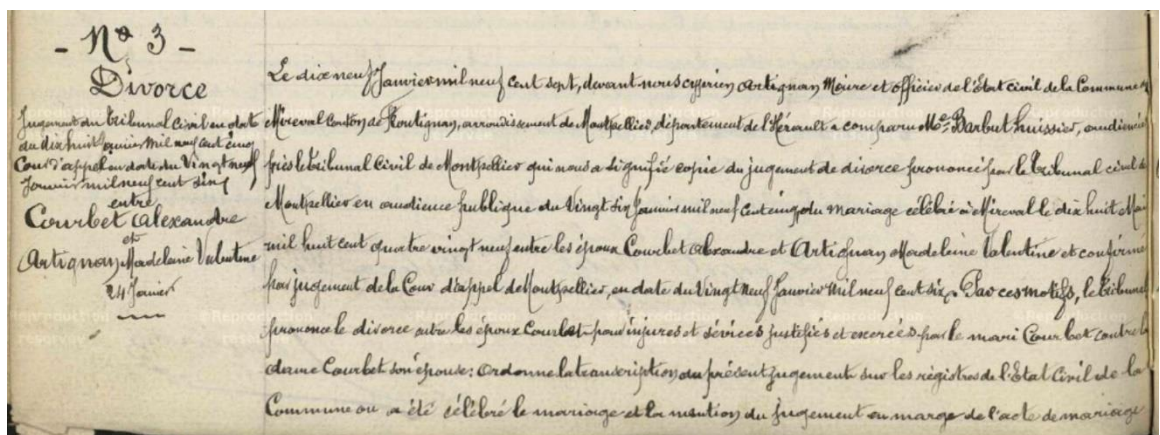 - Nº 3 -
Divorce
Jugement du tribunal Civil en date
du dix huit Janvier mil neuf cent cinq
Cour d'appel en date du Vingt neuf
Janvier mil neuf cent six
entre
Courbet Alexandre
et
Artignan Madeleine Valentine
24 Janvier
Le dix neuf Janvier mil neuf cent sept, devant nous Cyprien Artignan Maire et officier de l'Etat civil de la Commune de
Mireval Canton de Frontignan, arrondissement de Montpellier, département de l'Hérault a comparu Me Barbut huissier, audiencier
près le tribunal Civil de Montpellier qui nous a signifié copie du jugement de divorce prononcé par le tribunal civil de
Montpellier en audience publique du Vingt six Janvier mil neuf cent cinq du mariage célébré à Mireval le dix huit Mai
mil huit cent quatre vingt neuf entre les époux Courbet Alexandre et Artignan Madeleine Valentine et confirmé
par jugement de la Cour d'appel de Montpellier, en date du Vingt Neuf Janvier Mil neuf cent six. Par ces motifs, le tribunal
prononce le divorce entre les époux Courbet pour injures et sévices justifiés et exercés par le mari Courbet contre la
dame Courbet son épouse; Ordonne la transcription du présent jugement sur les régistres de l'Etat Civil de la
Commune ou a été célébré le mariage et la mention du jugement en marge de l'acte de mariage